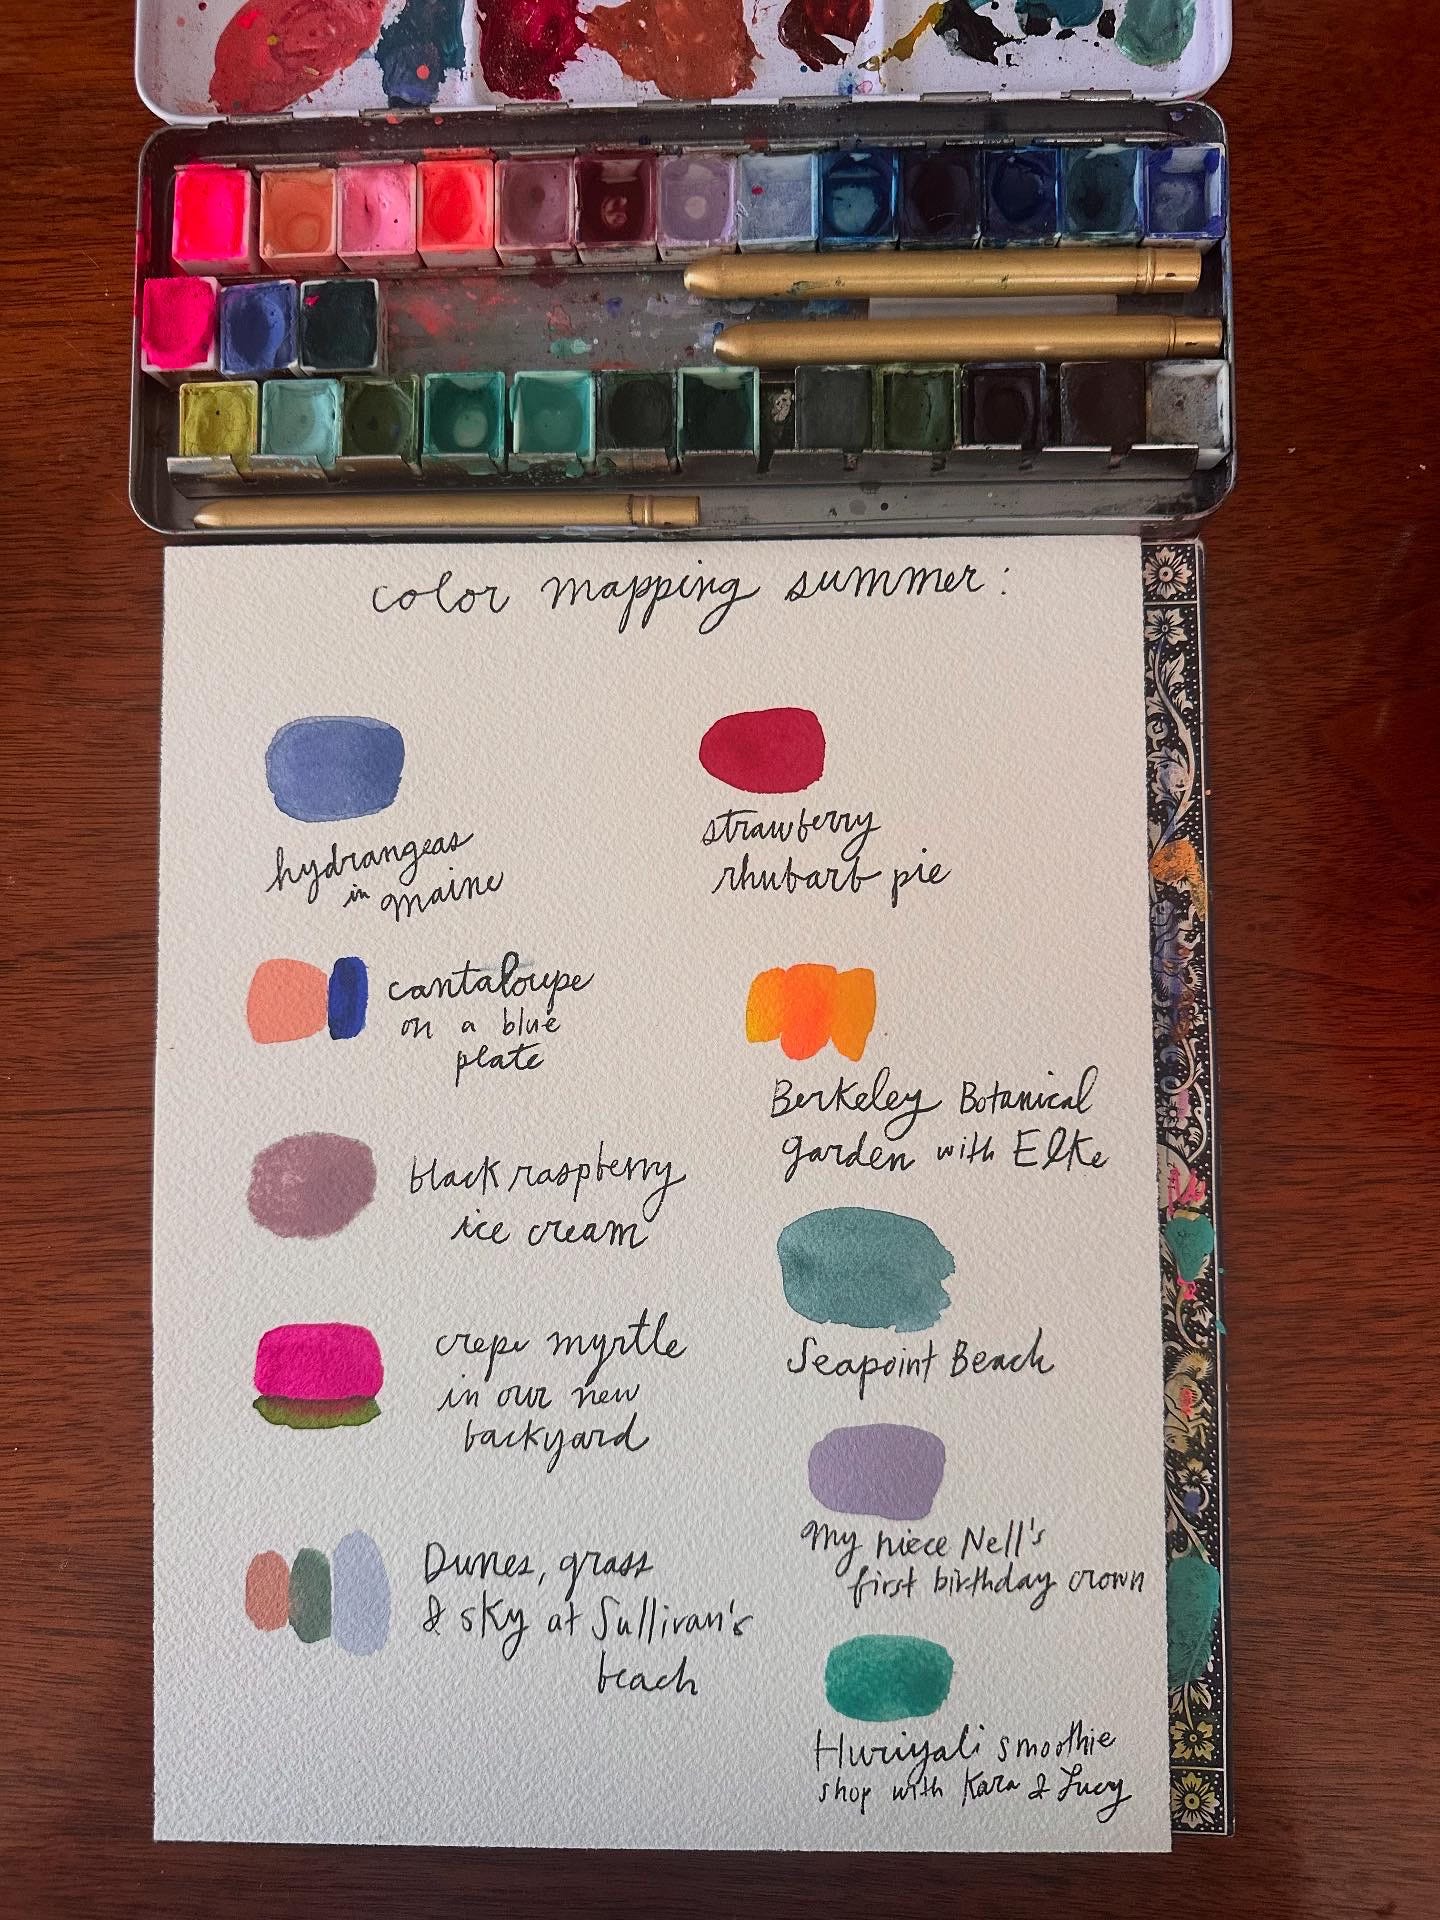 color mapping summer:
hydrangeas
in maine
cantaloupe
on a blue
plate
black raspberry
ice cream
crepe myrtle
in our new
backyard
Dunes, grass
& sky at Sullivan's
beach
strawberry
rhubarb pie
Berkeley Botanical
garden with Elke
Seapoint Beach
My niece Nell's
first birthday crown
Huriyali smoothie
shop with Kara & Lucy